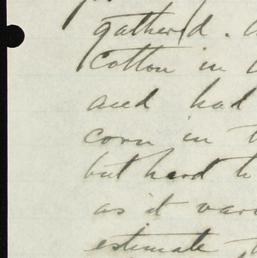 gathered.
Cotton in
and had
corn in
but hard
as it
estimate